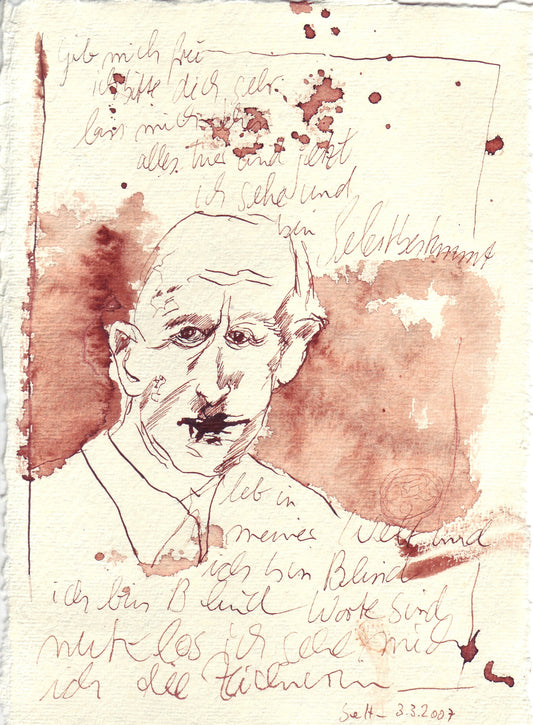 Gib mich frei
ich bitte dich sehr
lass mich
alles hier und jetzt
ich sehe und
bin Selbstbestimmt
leb in
meiner Welt und
ich bin Blind
ich bin Blind Worte sind
nutzlos ich sehe mich
ich die Zeichnerin
3.3.2007